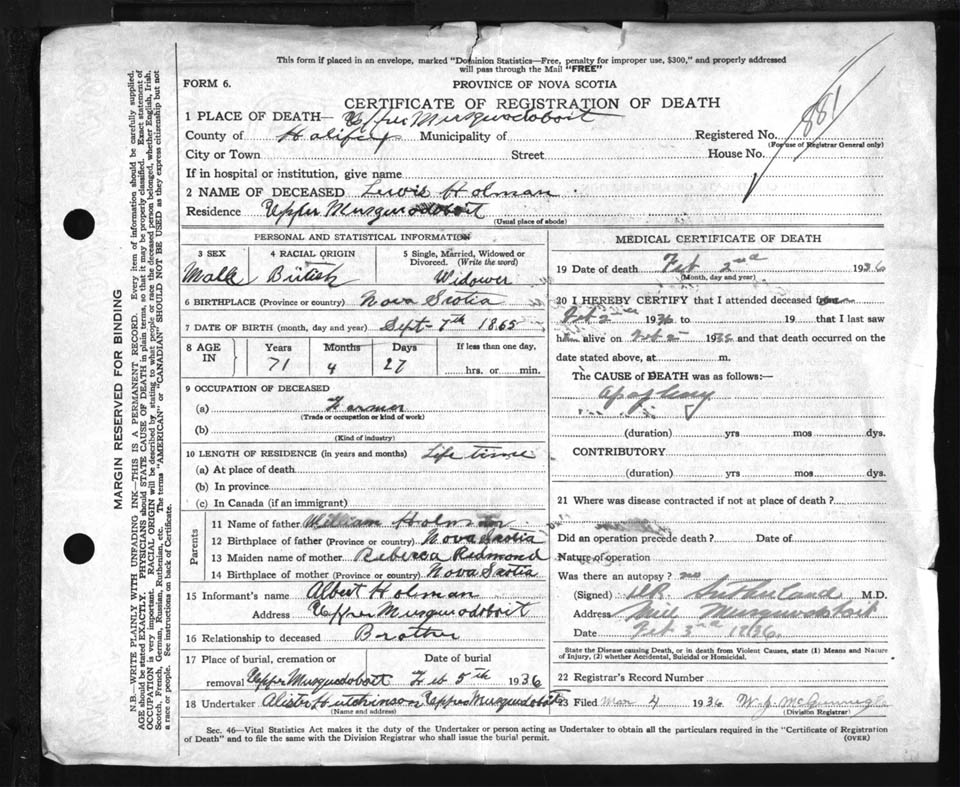 This form if placed in an envelope, marked "Dominion Statistics—Free, penalty for improper use, $300," and properly addressed
will pass through the Mail "FREE"
FORM 6.
PROVINCE OF NOVA SCOTIA
881
CERTIFICATE OF REGISTRATION OF DEATH
1 PLACE OF DEATH— Upper Musquodoboit
County of Halifax Municipality of Registered No.
(For use of Registrar General only)
City or Town Street House No.
If in hospital or institution, give name
2 NAME OF DECEASED Lewis Holman
Residence Upper Musquodoboit
(Usual place of abode)
PERSONAL AND STATISTICAL INFORMATION
3 SEX 4 RACIAL ORIGIN 5 Single, Married, Widowed or
Divorced. (Write the word)
Male British Widower
6 BIRTHPLACE (Province or country) Nova Scotia
7 DATE OF BIRTH (month, day and year) Sept- 7th 1865
8 AGE IN Years Months Days If less than one day,
71 4 27 hrs. or min.
9 OCCUPATION OF DECEASED
(a) Farmer
(Trade or occupation or kind of work)
(b)
(Kind of industry)
10 LENGTH OF RESIDENCE (in years and months) Life time
(a) At place of death
(b) In province
(c) In Canada (if an immigrant)
Parents
11 Name of father William Holman
12 Birthplace of father (Province or country) Nova Scotia
13 Maiden name of mother Rebecca Redmond
14 Birthplace of mother (Province or country) Nova Scotia
15 Informant's name Albert Holman
Address Upper Musquodoboit
16 Relationship to deceased Brother
17 Place of burial, cremation or Date of burial
removal Upper Musquodoboit Feb 5th 1936
18 Undertaker Alister Hutchinson Upper Musquodoboit
(Name and address)
MEDICAL CERTIFICATE OF DEATH
19 Date of death Feb 2nd 1936
(Month, day and year)
20 I HEREBY CERTIFY that I attended deceased from
Feb 2nd 1936 to 19 that I last saw
h alive on Feb 2 1936 and that death occurred on the
date stated above, at m.
The CAUSE of DEATH was as follows:—
Apoplexy
(duration) yrs mos dys.
CONTRIBUTORY
(duration) yrs mos dys.
21 Where was disease contracted if not at place of death?
Did an operation precede death? Date of
Nature of operation
Was there an autopsy? no
(Signed) Sutherland M.D.
Address Mid Musquodoboit
Date Feb 3rd 1936
State the Disease causing Death, or in death from Violent Causes, state (1) Means and Nature
of Injury, (2) whether Accidental, Suicidal or Homicidal.
22 Registrar's Record Number
23 Filed Mar 4 1936 W. J.
(Division Registrar)
Sec. 46—Vital Statistics Act makes it the duty of the Undertaker or person acting as Undertaker to obtain all the particulars required in the "Certificate of Registration
of Death" and to file the same with the Division Registrar who shall issue the burial permit.
(OVER)
MARGIN RESERVED FOR BINDING
N.B.—WRITE PLAINLY WITH UNFADING INK—THIS IS A PERMANENT RECORD. Every item of information should be carefully supplied.
AGE should be stated EXACTLY. PHYSICIANS should STATE CAUSE OF DEATH in plain terms, so that it may be properly classified. Exact statement of
OCCUPATION is very important. RACIAL ORIGIN will be described by stating to what people or race the deceased person belonged, whether English, Irish,
Scotch, French, German, Russian, Ruthenian, etc. The terms "AMERICAN" or "CANADIAN" SHOULD NOT BE USED as they express citizenship but not
a race or people. See instructions on back of Certificate.